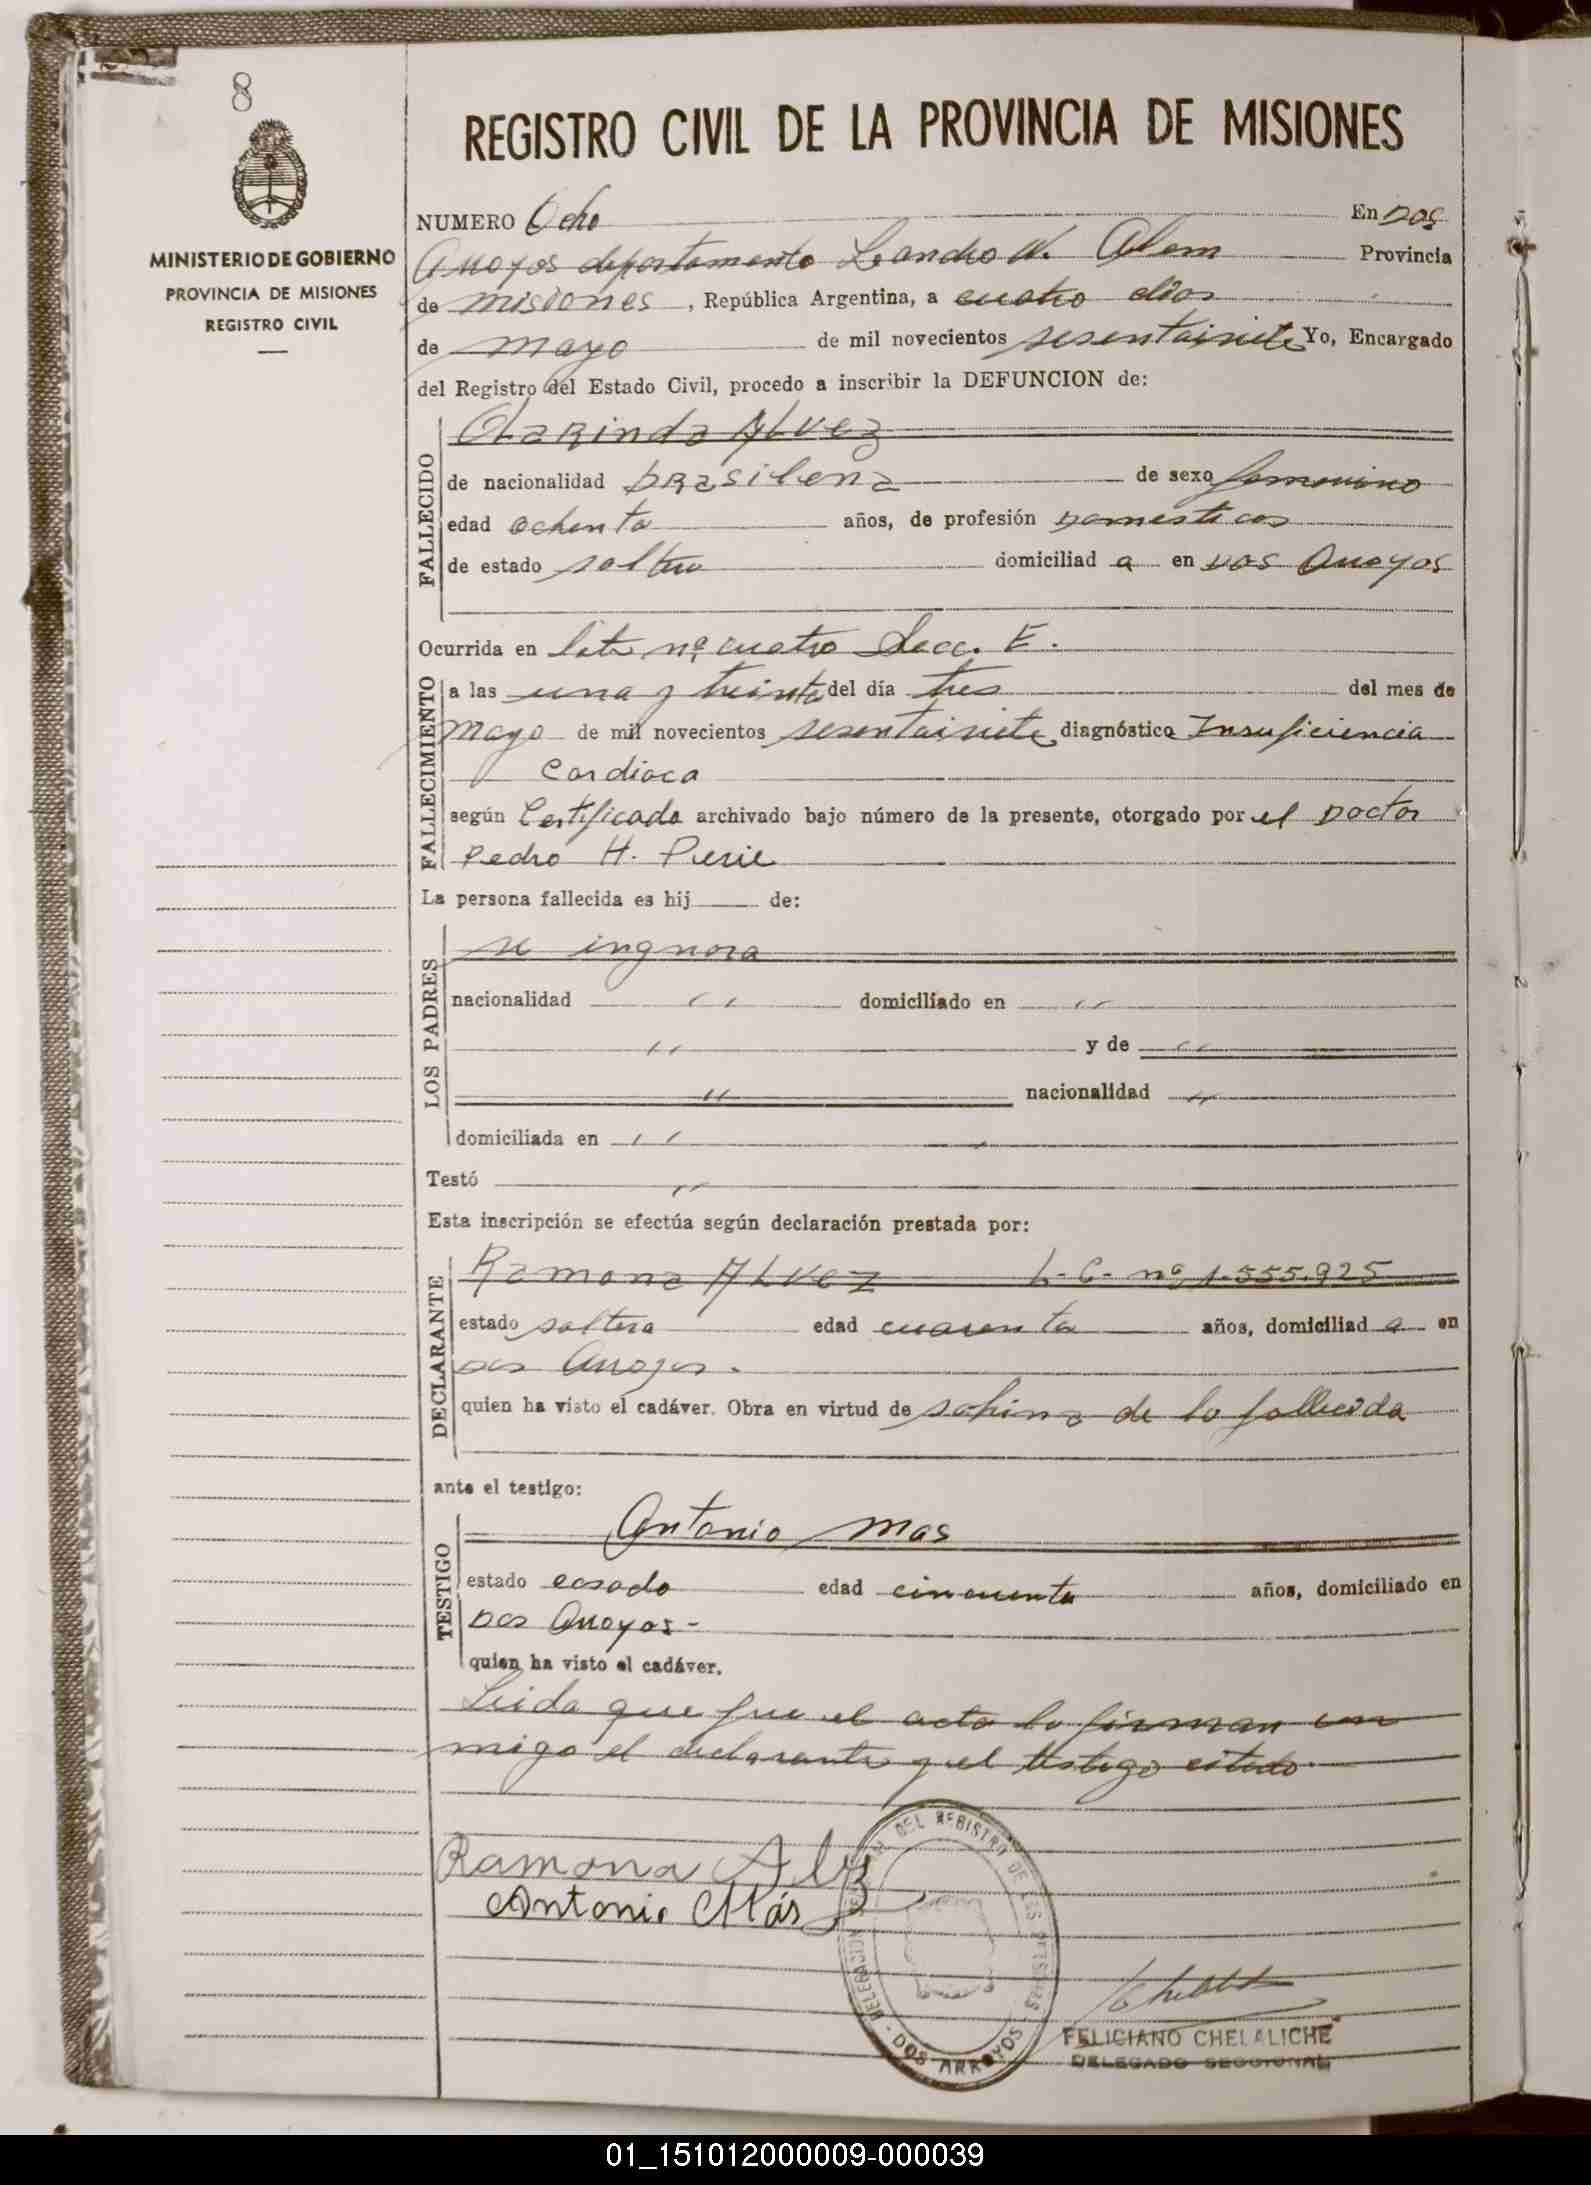 8
MINISTERIO DE GOBIERNO
PROVINCIA DE MISIONES
REGISTRO CIVIL
REGISTRO CIVIL DE LA PROVINCIA DE MISIONES
NUMERO Ocho En Dos
Arroyos departamento Leandro N. Alem Provincia
de misiones, República Argentina, a cuatro dias
de mayo de mil novecientos sesentaisiete Yo, Encargado
del Registro del Estado Civil, procedo a inscribir la DEFUNCION de:
FALLECIDO
Clarinda Alvez
de nacionalidad brasilena de sexo femenino
edad ochenta años, de profesión Domesticos
de estado soltera domiciliad a en Dos Arroyos
Ocurrida en lote nº cuatro Secc. E.
FALLECIMIENTO
a las una y treinta del día tres del mes de
mayo de mil novecientos sesentaisiete diagnóstico Insuficiencia
Cardiaca
según Certificado archivado bajo número de la presente, otorgado por el Doctor
Pedro H.
La persona fallecida es hij de:
LOS PADRES
se ingnora
nacionalidad " domiciliado en "
" y de "
" nacionalidad "
domiciliada en "
Testó "
Esta inscripción se efectúa según declaración prestada por:
DECLARANTE
Ramona Alvez L-C- nº 1.555.925
estado soltera edad cuarenta años, domiciliad a en
Dos Arroyos.
quien ha visto el cadáver. Obra en virtud de sobina de la fallecida
ante el testigo:
TESTIGO
Antonio mas
estado casado edad cincuenta años, domiciliado en
Dos Arroyos-
quien ha visto el cadáver.
Leida que fue el acta la firman con
migo el declarante y el testigo citado
Ramona Alvez
Antonio Más
DELEGACION SECCIONAL DEL REGISTRO DE LAS PERSONAS - DOS ARROYOS -
FELICIANO CHELALICHE
DELEGADO SECCIONAL
01_151012000009-000039